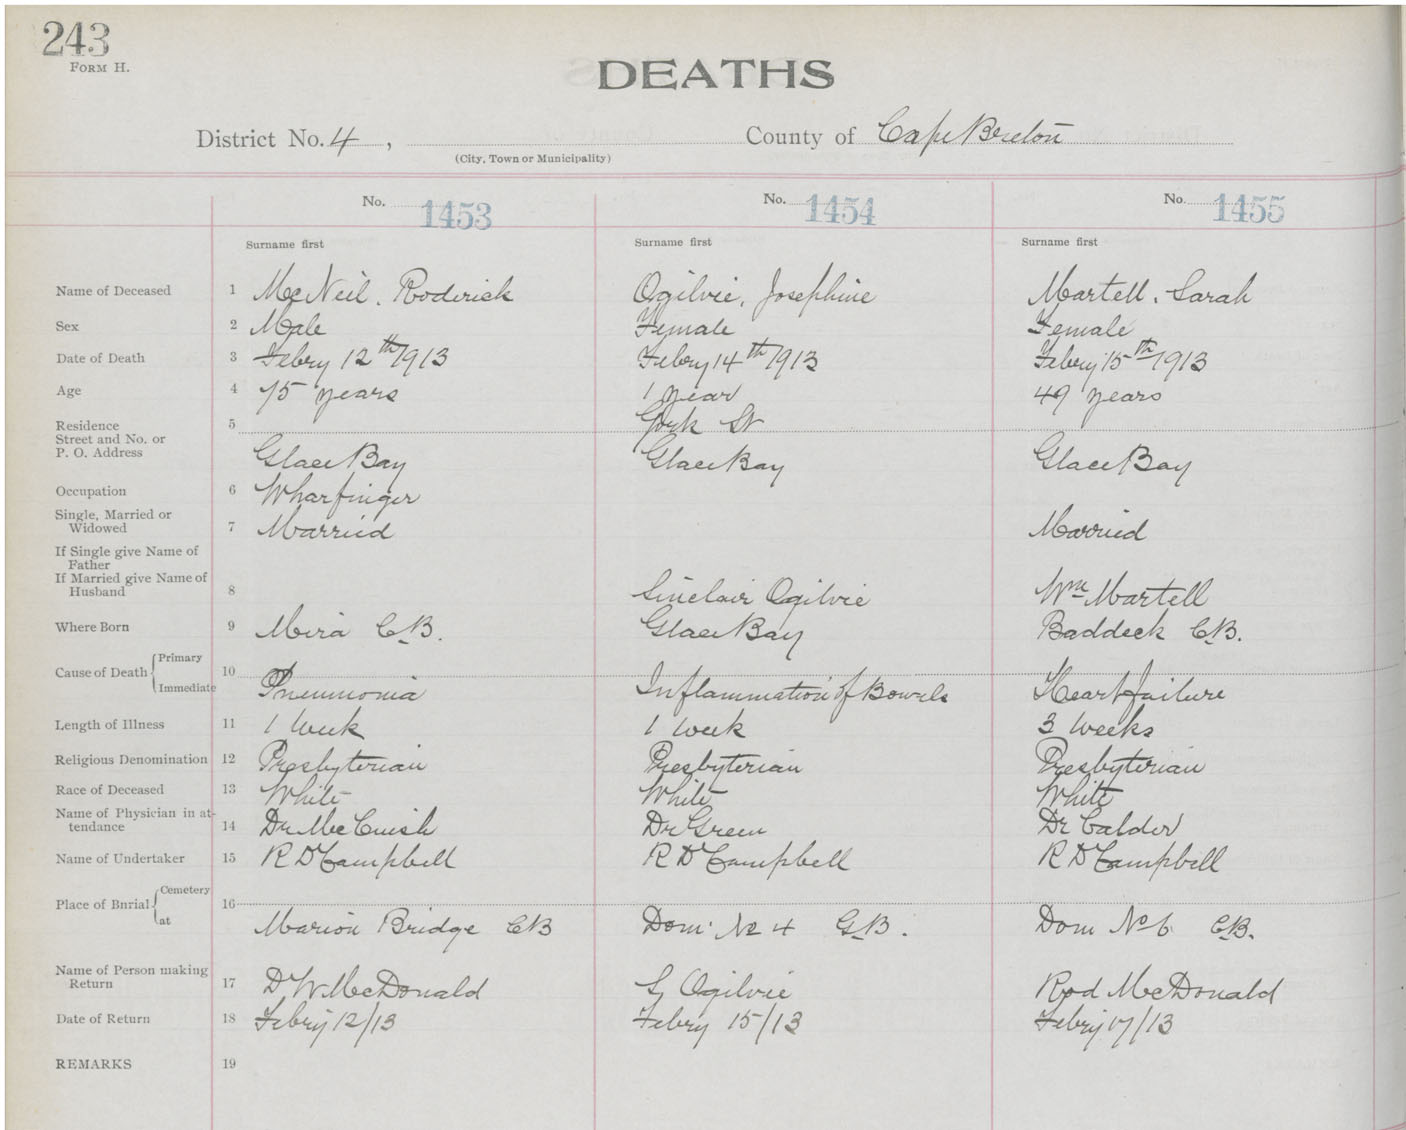 243
FORM H.
DEATHS
District No. 4, County of Cape Breton
(City, Town or Municipality)
No. 1453 No. 1454 No. 1455
Surname first Surname first Surname first
Name of Deceased 1 McNeil, Roderick Ogilvie, Josephine Martell, Sarah
Sex 2 Male Female Female
Date of Death 3 Febry 12th 1913 Febry 14th 1913 Febry 15th 1913
Age 4 75 years 1 year 49 years
Residence 5 York St
Street and No. or
P. O. Address Glace Bay Glace Bay Glace Bay
Occupation 6 Wharfinger
Single, Married or
Widowed 7 Married Married
If Single give Name of
Father
If Married give Name of
Husband 8 Sinclair Ogilvie Wm Martell
Where Born 9 Mira C.B. Glace Bay Baddeck C.B.
Cause of Death { Primary 10
Immediate Pneumonia Inflammation of Bowels Heart failure
Length of Illness 11 1 week 1 week 3 weeks
Religious Denomination 12 Presbyterian Presbyterian Presbyterian
Race of Deceased 13 White White White
Name of Physician in at-
tendance 14 Dr McCuish Dr Green Dr Calder
Name of Undertaker 15 R D Campbell R D Campbell R D Campbell
Place of Bnrial { Cemetery 16
at Marion Bridge CB Dom. No 4 G.B. Dom No 6 C.B.
Name of Person making
Return 17 D W McDonald S Ogilvie Rod McDonald
Date of Return 18 Febry 12/13 Febry 15/13 Febry 17/13
REMARKS 19